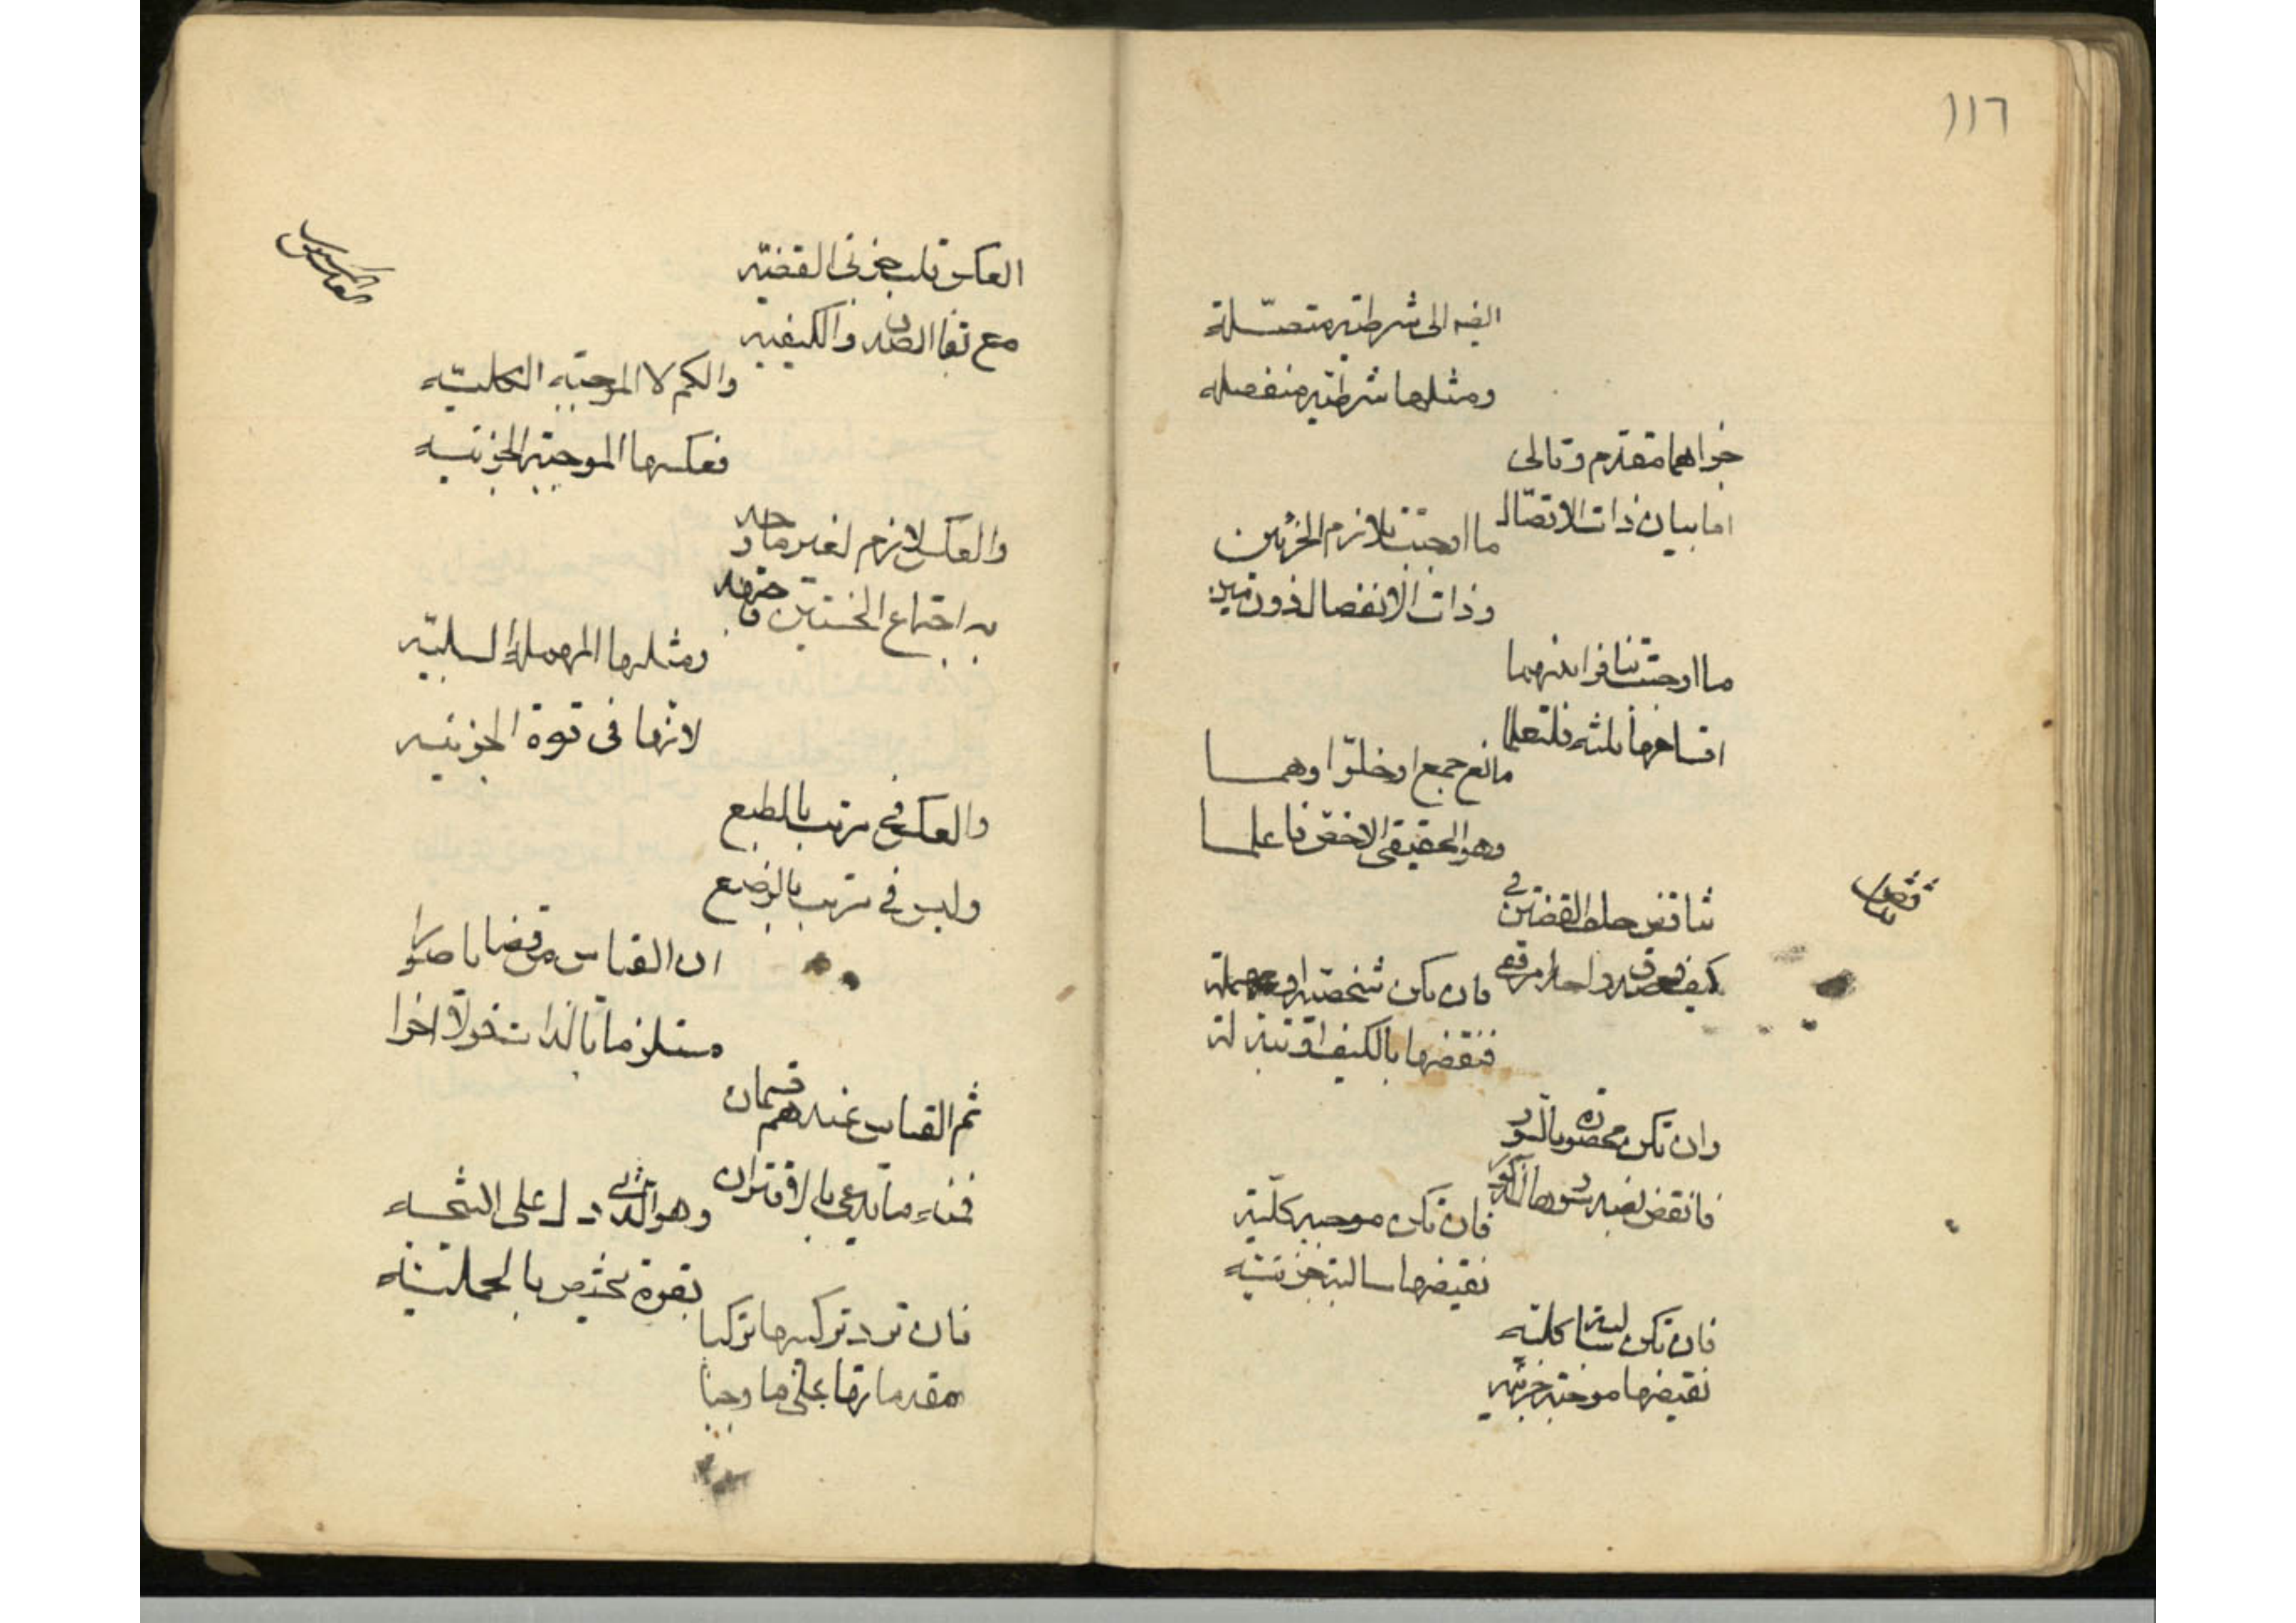 ١١٦
ايضا الى شرطية متصلة
ومثلها شرطية منفصله
جزاهما مقدم وتالى
اما بيان ذات الاتصال
ما اوجبت تلازم الجزئين
وذات الانفصال دون مين
ما اوجبت تنافرا بينهما
اقسامها ثلثه فلتعلما
مانع جمع او خلوّا وهما
وهو الحقيقى الاخص فاعلما
تناقض
تناقض خلف القضيتين فى
كيف وصدق واحد امر قفى
فان تكن شخصية او مهملة
فنقضها بالكيف ان تبدله
وان تكن محصورة بالسور
فانقض بضد سورها المذكور
فان تكن موجبه كلية
نقيضها سالبة جزئيه
فان تكن سالبة كليه
نقيضها موجبة جزئيه
العكس
العكس قلب جزئى القضيّه
مع بقا الصدق والكيفيه
والكم لا الموجبة الكليّه
فعكسها الموجبة الجزئيه
والعكس لازم لغير ما وجد
به اجتماع الخستين فاقتصد
ومثلها المهملة السلبيّه
لانها فى قوة الجزئيه
والعكس فى مرتب بالطبع
وليس فى مرتب بالوضع
ان القياس من قضايا صورا
مستلزما بالذات قولا اخرا
ثم القياس عندهم قسمان
فمنه ما يدعى بالاقتران
وهو الذى دل على النتيجه
بقوة يختص بالحمليه
فان ترد تركيبها تركبا
مقدماتها على ما وجبا